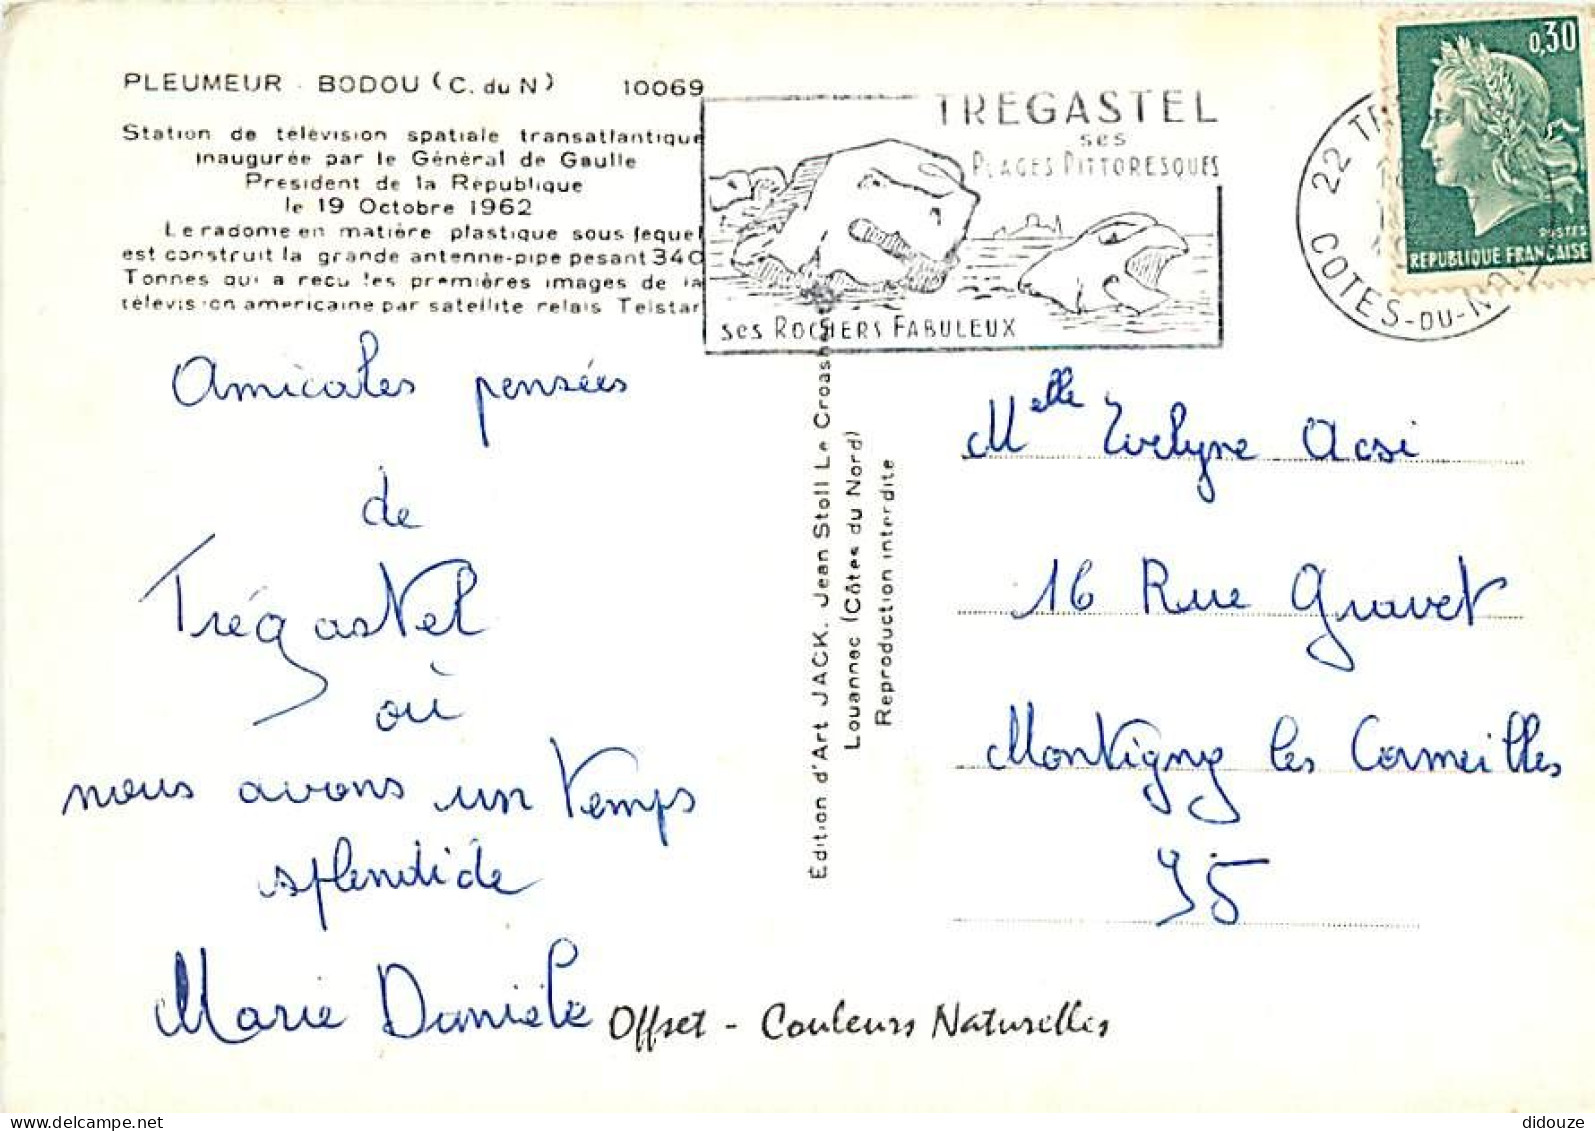 PLEUMEUR - BODOU (C. du N) 10069
Station de télévision spatiale transatlantique
inaugurée par le Général de Gaulle
President de la République
le 19 Octobre 1962
Le radome en matière plastique sous lequel
est construit la grande antenne-pipe pesant 340
Tonnes qui a recu les premières images de la
télévision americaine par satellite relais Telstar
TREGASTEL
ses
PLAGES PITTORESQUES
ses ROCHERS FABULEUX
22 TR
COTES-DU-NO
0,30
POSTES
REPUBLIQUE FRANÇAISE
Amicales pensées
de
Trégastel
où
nous avons un temps
splendide
Marie Danièle
Édition d'Art JACK. Jean Stoll Le Croashent
Louannec (Côtes du Nord)
Reproduction interdite
Melle Evelyne Acsi
16 Rue Gravet
Montigny les Cormeilles
95
Offset - Couleurs Naturelles
didouze